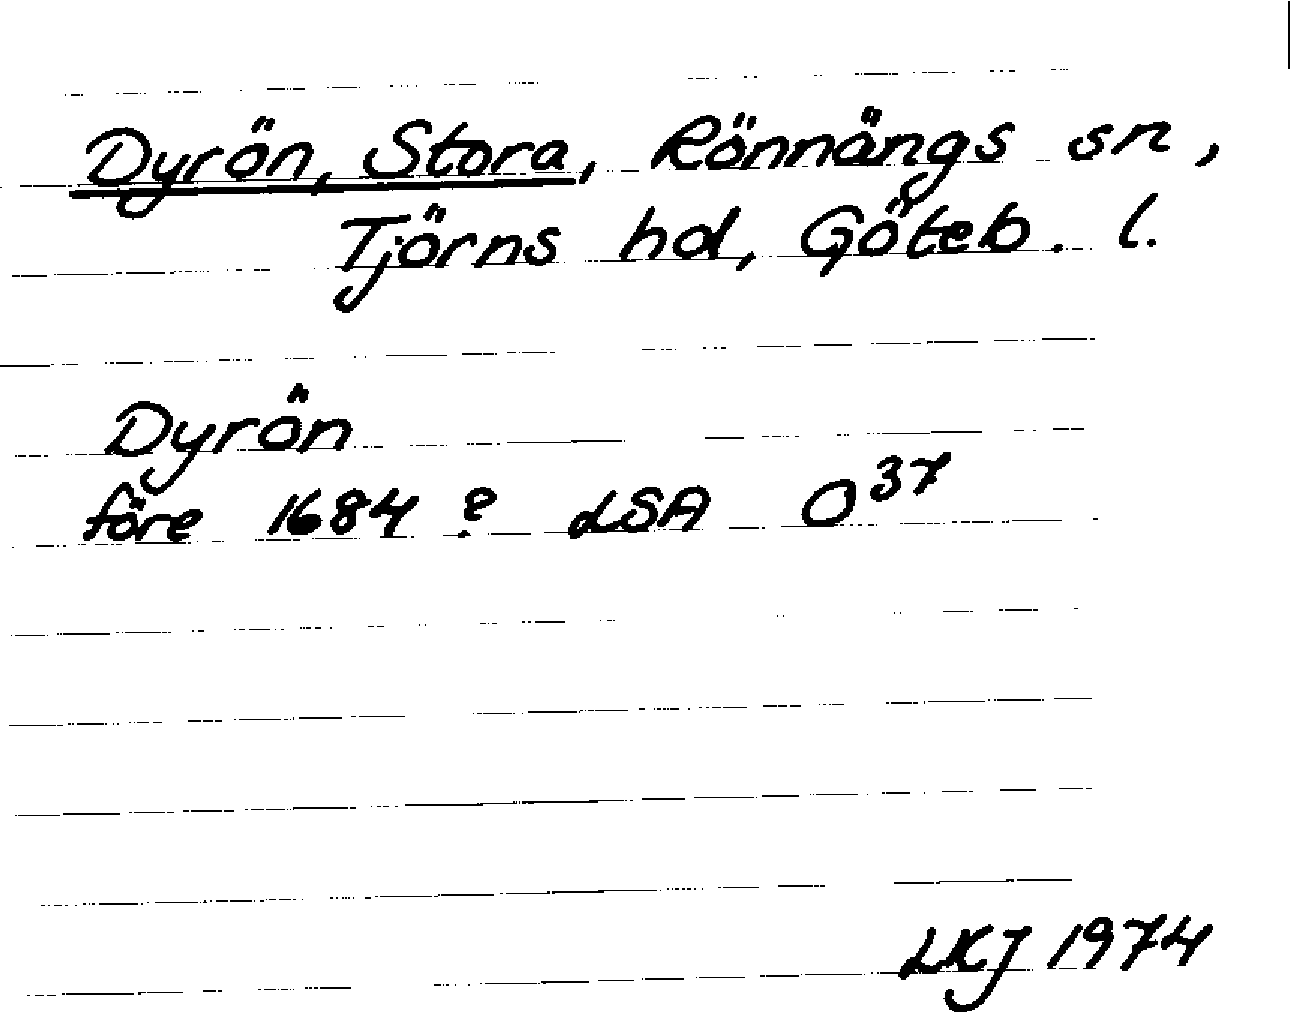 Dyrön, Stora, Rönnängs sn,
Tjörns hd, Göteb. l.
Dyrön
före 1684? LSA O³⁷
LKJ 1974